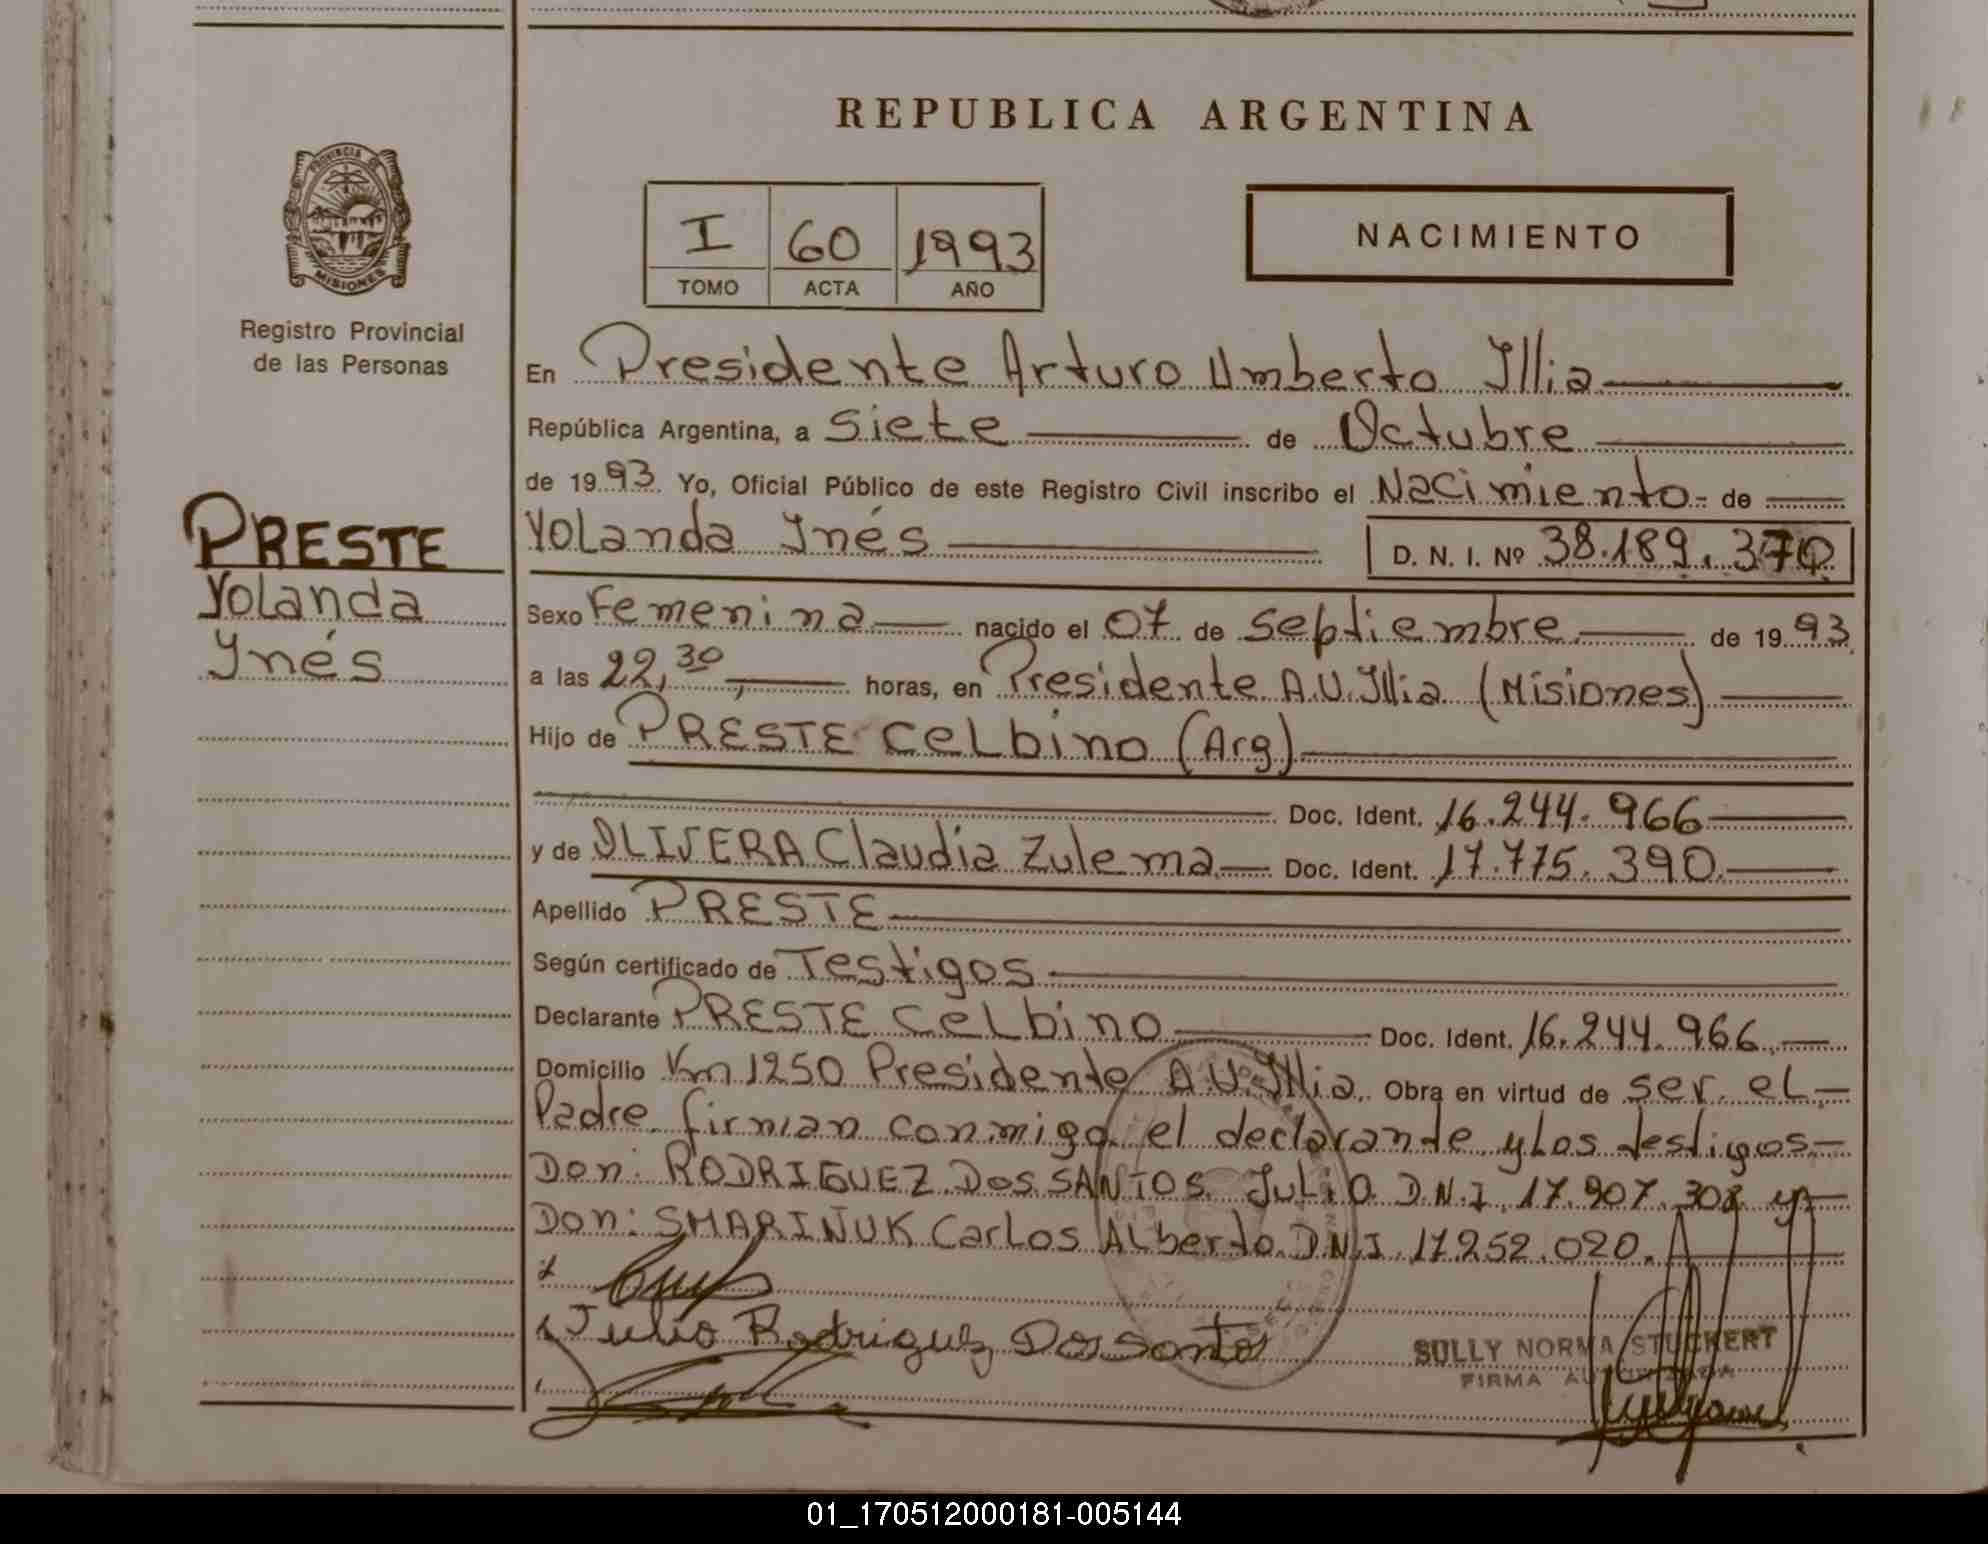 REPUBLICA ARGENTINA
PROVINCIA DE
MISIONES
Registro Provincial
de las Personas
I 60 1993
TOMO ACTA AÑO
NACIMIENTO
PRESTE
Yolanda
Ynés
En Presidente Arturo Umberto Yllia
República Argentina, a Siete de Octubre
de 1993 Yo, Oficial Público de este Registro Civil inscribo el Nacimiento de
Yolanda Ynés D. N. I. Nº 38.189.370
Sexo Femenina nacido el 07 de Septiembre de 1993
a las 22,30 horas, en Presidente A.U. Yllia (Misiones)
Hijo de PRESTE Celbino (Arg)
Doc. Ident. 16.244.966
y de OLIVERA Claudia Zulema Doc. Ident. 17.775.390
Apellido PRESTE
Según certificado de Testigos
Declarante PRESTE Celbino Doc. Ident. 16.244.966
Domicilio Km 1250 Presidente A.U. Yllia Obra en virtud de ser el
Padre firman conmigo el declarande y Los testigos
Don: RODRIGUEZ Dos SANTOS Julio D.N.I 17.907.308 y
Don: SMARIÑUK Carlos Alberto D.N.I 17.252.020.
Julio Rodriguez Dos Santos
SULLY NORMA STUCKERT
FIRMA AUTORIZADA
01_170512000181-005144